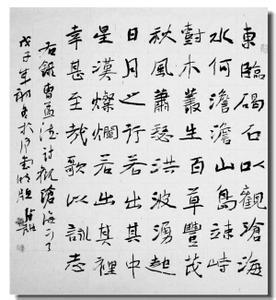 東臨碣石以觀滄海
水何澹澹山島竦峙
樹木叢生百草豐茂
秋風蕭瑟洪波湧起
日月之行若出其中
星漢燦爛若出其裡
幸甚至哉歌以詠志
右錄曹孟德詩觀滄海
戊子年 於